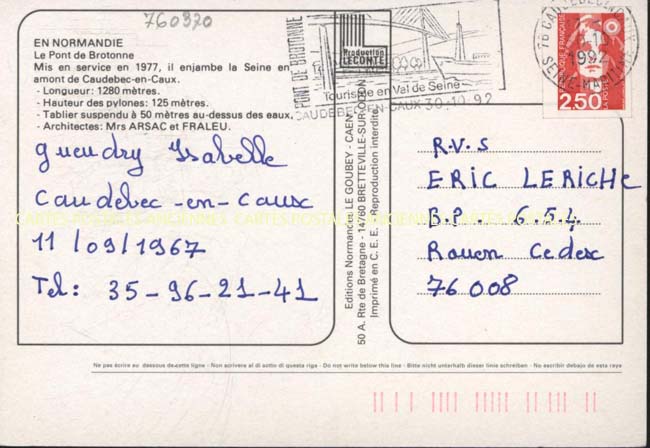 760320
EN NORMANDIE
Le Pont de Brotonne
Mis en service en 1977, il enjambe la Seine en
amont de Caudebec-en-Caux.
- Longueur: 1280 mètres.
- Hauteur des pylones: 125 mètres.
- Tablier suspendu à 50 mètres au-dessus des eaux.
- Architectes: Mrs ARSAC et FRALEU.
Guendry Isabelle
Caudebec-en-Caux
11/09/1967
Tel: 35-96-21-41
PONT DE BROTONNE
Production
LECONTE
Tourisme en Val de Seine
CAUDEBEC-EN-CAUX 30.10.92
76 CAUDEBEC-EN-
1992
SEINE-MARITIME
FRANÇAISE
2,50
LA POSTE
Editions Normandes LE GOUBEY - CAEN
50 A, Rte de Bretagne - 14760 BRETTEVILLE-SUR-ODON
Imprimé en C. E. E. - Reproduction interdite
R.V.S
ERIC LERICHE
B.P. 6.5.4
Rouen Cedex
76008
CARTES POSTALES ANCIENNES CARTES POSTALES ANCIENNES CARTES POSTALES ANCIENNES
Ne pas écrire au dessous de cette ligne - Non scrivere al di sotto di questa riga - Do not write below this line - Bitte nicht unterhalb dieser linie schreiben - No escribir debajo de esta raya